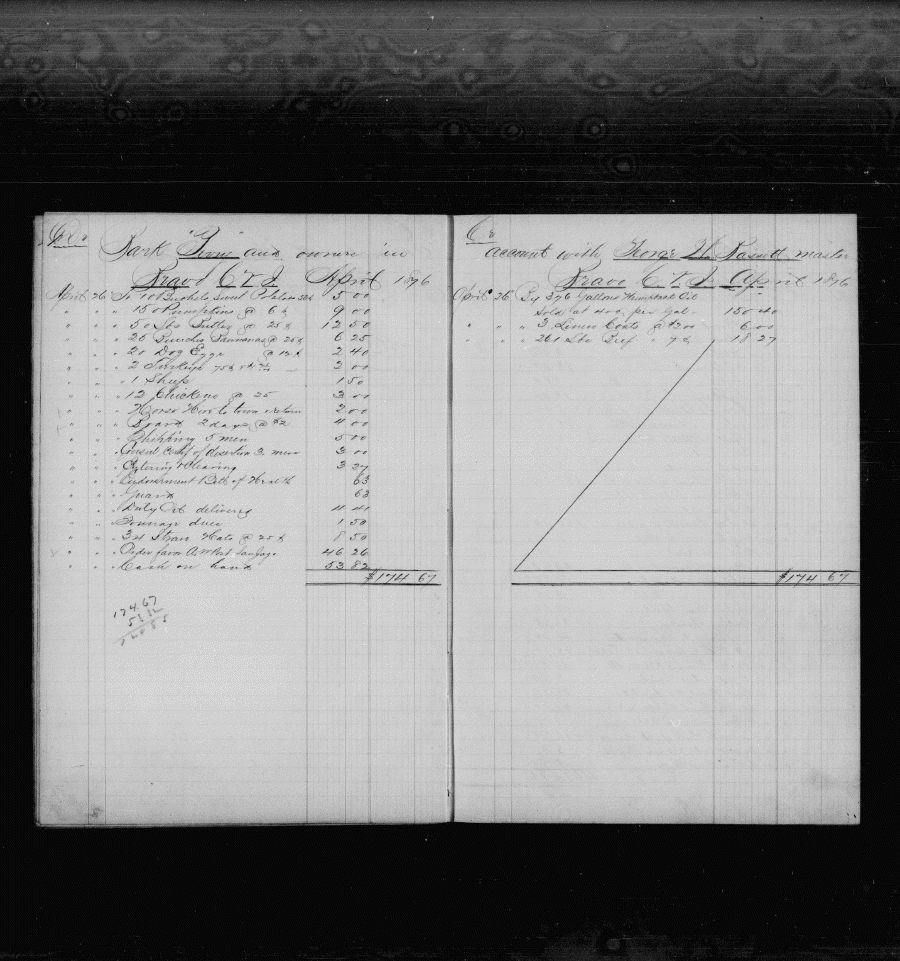 Dr
Bark "Percy" and owners in
Bravo C V I April 1876
April 26 To 10 Bushels Sweet Potatoes 50¢ 5 00
" " " 150 Pumpkins @ 6¢ 9 00
" " " 50 lbs @ 25¢ 12 50
" " " 25 Bunches Bananas @ 25¢ 6 25
" " " 20 Doz Eggs @ 12¢ 2 40
" " " 2 Turkeys 2 00
" " " 1 Sheep 1 50
" " " 12 Chickens @ 25 3 00
" " " Horse Hire to town & return 2 00
" " " Board 2 days @ $2 4 00
" " " Shipping 5 men 5 00
" " " Consul Certf of desertion 3 men 3 00
" " " Entering & Clearing 3 27
" " " Endorsement Bill of Health 63
" " " Guard 63
" " " Duty Oil delivered 4 41
" " " Tonnage dues 1 50
" " " 34 Straw Hats @ 25¢ 8 50
" " " Order favor 46 26
" " " Cash on hand 53 82
$174 67
174.67
Cr
account with George H. master
Bravo C V I April 1876
April 26 By 376 Gallons Humpback Oil
Sold at 40¢ per Gal. 150 40
" " " 3 Linen Coats @ $2 00 6 00
" " " 261 Lbs Beef " 7¢ 18 27
$174 67